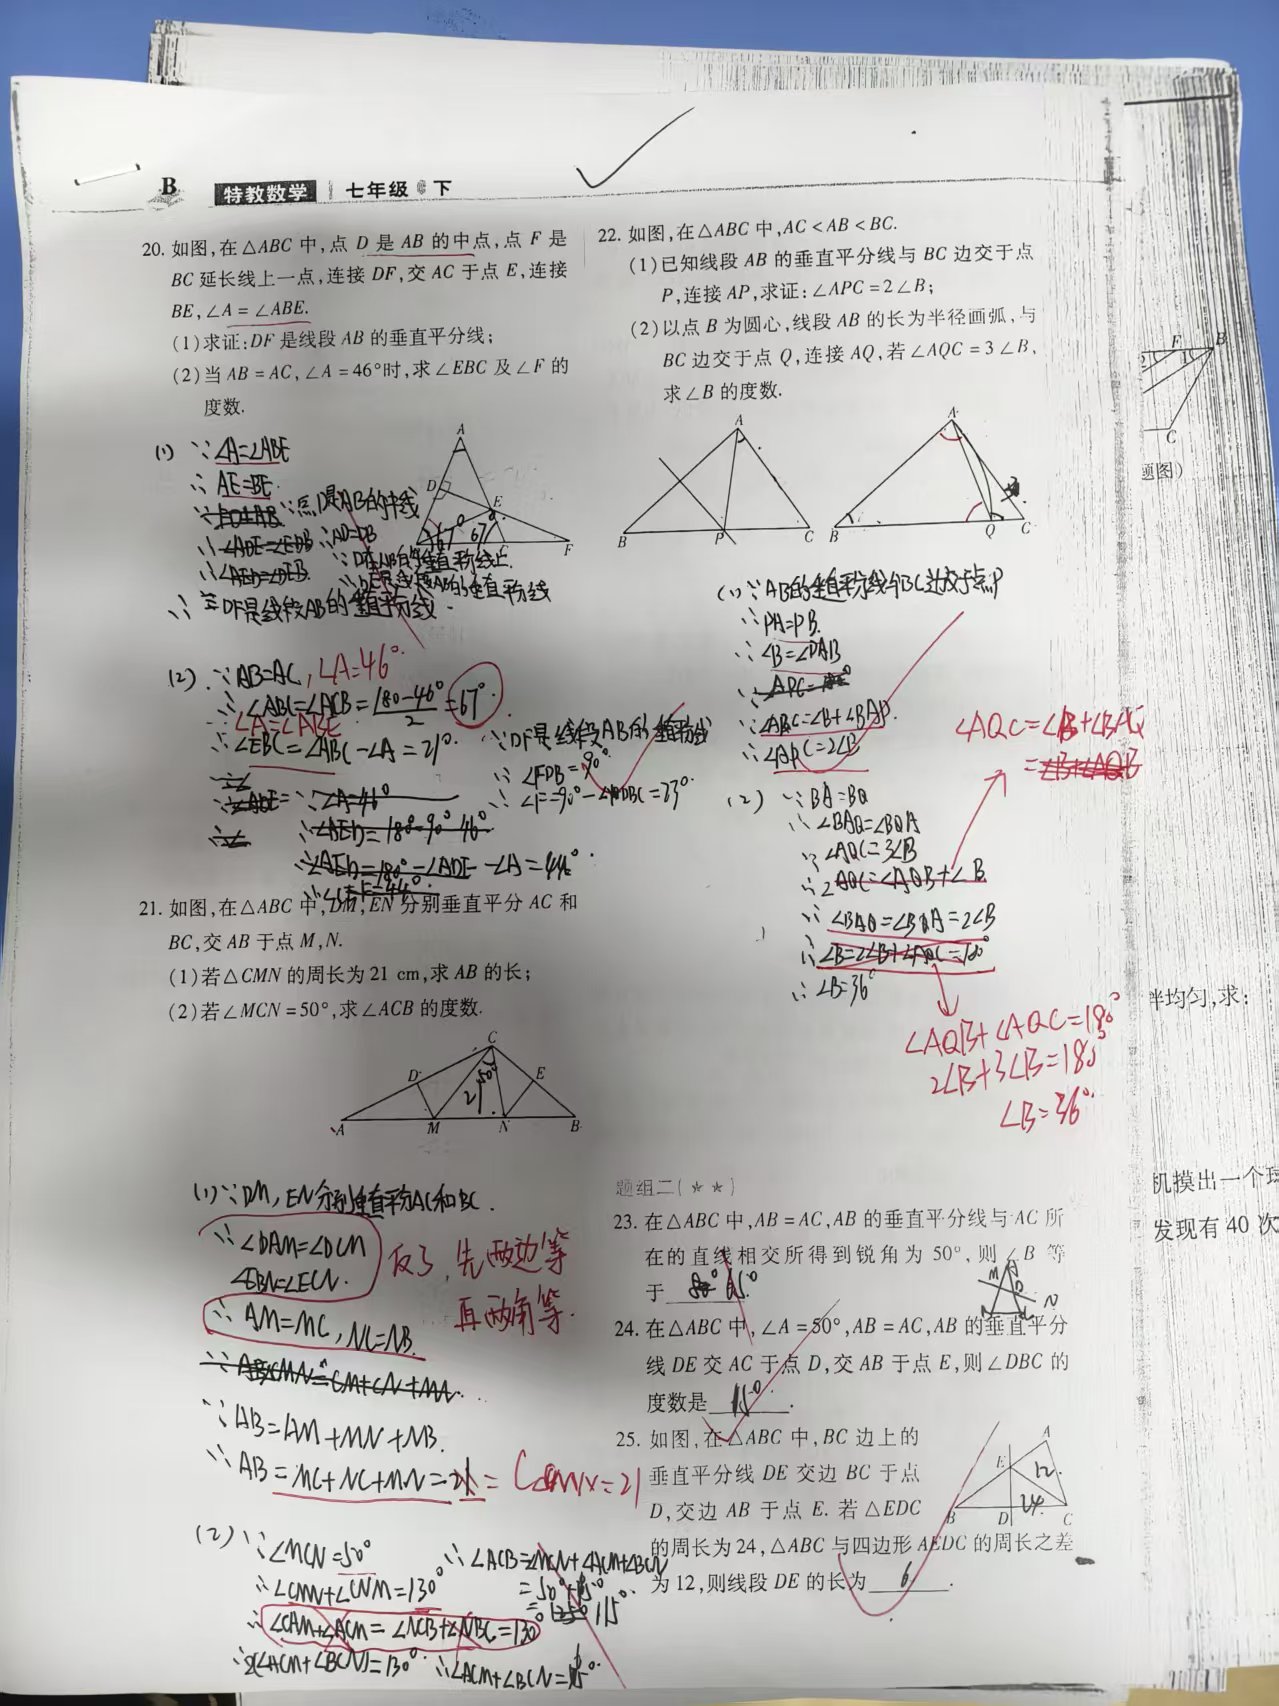 B 特教数学 七年级 下
20. 如图,在△ABC 中,点 D 是 AB 的中点,点 F 是
BC 延长线上一点,连接 DF,交 AC 于点 E,连接
BE,∠A = ∠ABE.
(1)求证:DF 是线段 AB 的垂直平分线;
(2)当 AB = AC,∠A = 46°时,求∠EBC 及∠F 的
度数.
A
D
E
67° 67°
C
F
(1) ∵ ∠A=∠ABE
∴ AE=BE.
∵点D是AB的中线
∴AD=DB
∴D在AB的垂直平分线上.
∴DE是线段AB的垂直平分线
∴ DF是线段AB的垂直平分线.
(2) ∵AB=AC,∠A=46°.
∴∠ABC=∠ACB=180-46°/2=67°.
∠A=∠ABE
∴∠EBC=∠ABC-∠A=21°.
∵DF是线段AB的垂直平分线
∴∠FDB=90°
∴∠F=90°-∠DBC=23°.
∴∠A=46°
∴∠AED=180°-90°-46°
∴∠AED=180°-∠ADE-∠A=44°.
21. 如图,在△ABC 中,DM,EN 分别垂直平分 AC 和
BC,交 AB 于点 M,N.
(1)若△CMN 的周长为 21 cm,求 AB 的长;
(2)若∠MCN = 50°,求∠ACB 的度数.
C
D
E
50°
21
A M N B
(1)∵DM,EN分别垂直平分AC和BC.
∴∠DAM=∠DCM
∠EBN=∠ECN.
反了,先两边等
再两角等.
∴AM=MC,NC=NB.
∵AB=AM+MN+NB.
∴AB=MC+NC+MN=21=C△CMN=21
(2)∵∠MCN=50°
∴∠CMN+∠CNM=130°
∴∠CAM+∠ACM=∠NCB+∠NBC=130°
∴2(∠ACM+∠BCN)=130°
∴∠ACM+∠BCN=65°.
∴∠ACB=∠MCN+∠ACM+∠BCN
=50°+65°
=115°
22. 如图,在△ABC 中,AC < AB < BC.
(1)已知线段 AB 的垂直平分线与 BC 边交于点
P,连接 AP,求证:∠APC = 2∠B;
(2)以点 B 为圆心,线段 AB 的长为半径画弧,与
BC 边交于点 Q,连接 AQ,若∠AQC = 3∠B,
求∠B 的度数.
A
B P C
A
B Q C
(1)∵AB的垂直平分线与BC边交于点P
∴PA=PB.
∴∠B=∠PAB
∴∠APC=∠B+∠BAP.
∴∠APC=2∠B
∠AQC=∠B+∠BAQ
=∠B+∠AQB
(2) ∵BA=BQ
∴∠BAQ=∠BQA
∵∠AQC=3∠B
∴∠AQC=∠AQB+∠B
∴∠BAQ=∠BQA=2∠B
∴∠B=2∠B+∠AQC=180°
∴∠B=36°
∠AQB+∠AQC=180°
2∠B+3∠B=180°
∠B=36°.
题组二(★★)
23. 在△ABC 中,AB = AC,AB 的垂直平分线与 AC 所
在的直线相交所得到锐角为 50°,则∠B 等
于 65°.
24. 在△ABC 中,∠A = 50°,AB = AC,AB 的垂直平分
线 DE 交 AC 于点 D,交 AB 于点 E,则∠DBC 的
度数是 15°.
25. 如图,在△ABC 中,BC 边上的
垂直平分线 DE 交边 BC 于点
D,交边 AB 于点 E. 若△EDC
的周长为 24,△ABC 与四边形 AEDC 的周长之差
为 12,则线段 DE 的长为 6 .
A
E
12
24
B D C
F B
C
题图)
拌均匀,求:
机摸出一个球
发现有 40 次